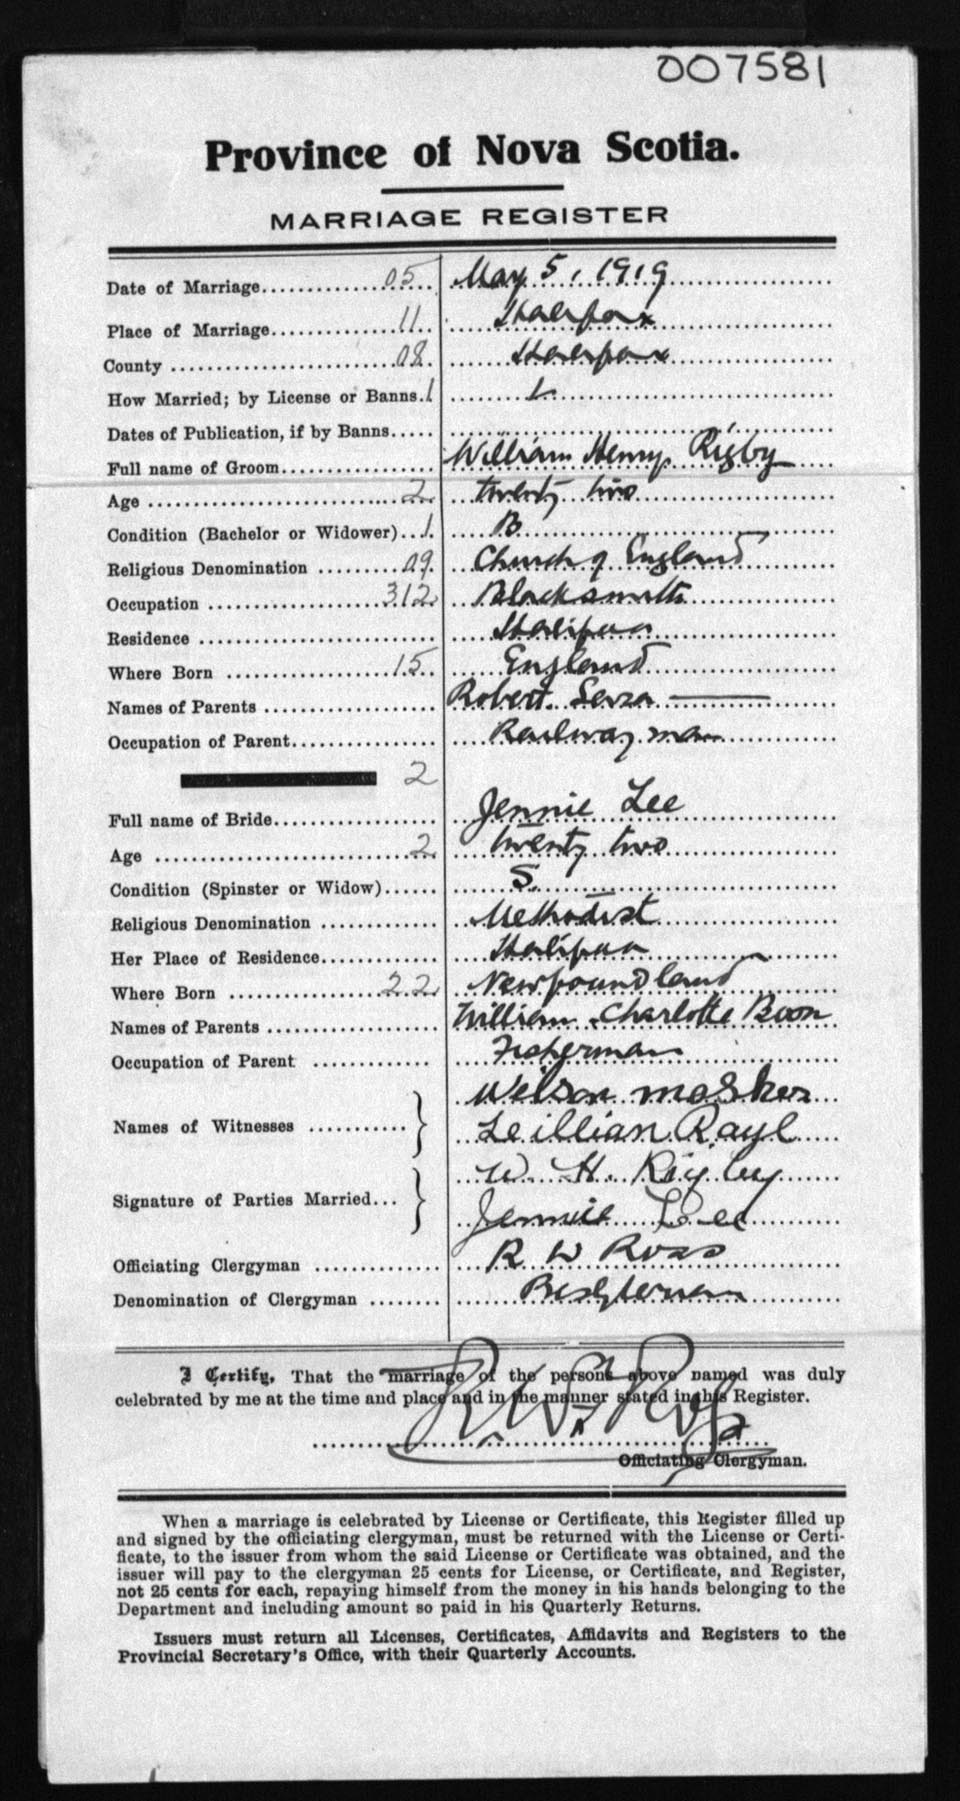 007581
Province of Nova Scotia.
MARRIAGE REGISTER
Date of Marriage 05 May 5, 1919
Place of Marriage 11 Halifax
County 08 Halifax
How Married; by License or Banns. 1 L
Dates of Publication, if by Banns
Full name of Groom William Henry Rigby
Age 2 twenty two
Condition (Bachelor or Widower) 1 B
Religious Denomination 09 Church of England
Occupation 312 Blacksmith
Residence Halifax
Where Born 15 England
Names of Parents Robert
Occupation of Parent Railway man
2
Full name of Bride Jennie Lee
Age 2 twenty two
Condition (Spinster or Widow) S
Religious Denomination Methodist
Her Place of Residence Halifax
Where Born 22 Newfoundland
Names of Parents William Charlotte Boon
Occupation of Parent Fisherman
Names of Witnesses
Signature of Parties Married W. H. Rigby
Jennie Lee
Officiating Clergyman R W Ross
Denomination of Clergyman Presbyterian
I Certify, That the marriage of the persons above named was duly
celebrated by me at the time and place and in the manner stated in this Register.
R. W. Ross
Officiating Clergyman.
When a marriage is celebrated by License or Certificate, this Register filled up
and signed by the officiating clergyman, must be returned with the License or Certi-
ficate, to the issuer from whom the said License or Certificate was obtained, and the
issuer will pay to the clergyman 25 cents for License, or Certificate, and Register,
not 25 cents for each, repaying himself from the money in his hands belonging to the
Department and including amount so paid in his Quarterly Returns.
Issuers must return all Licenses, Certificates, Affidavits and Registers to the
Provincial Secretary's Office, with their Quarterly Accounts.